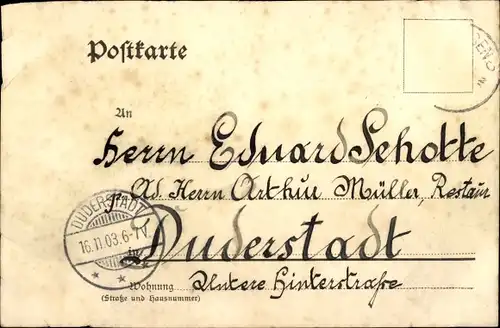 Postkarte
An
Herrn Eduard Schotte
Ad. Herrn Arthur Müller, Restaur
in Duderstadt
DUDERSTADT
16.11.03.6-7N.
Untere Hinterstraße
Wohnung
(Straße und Hausnummer)